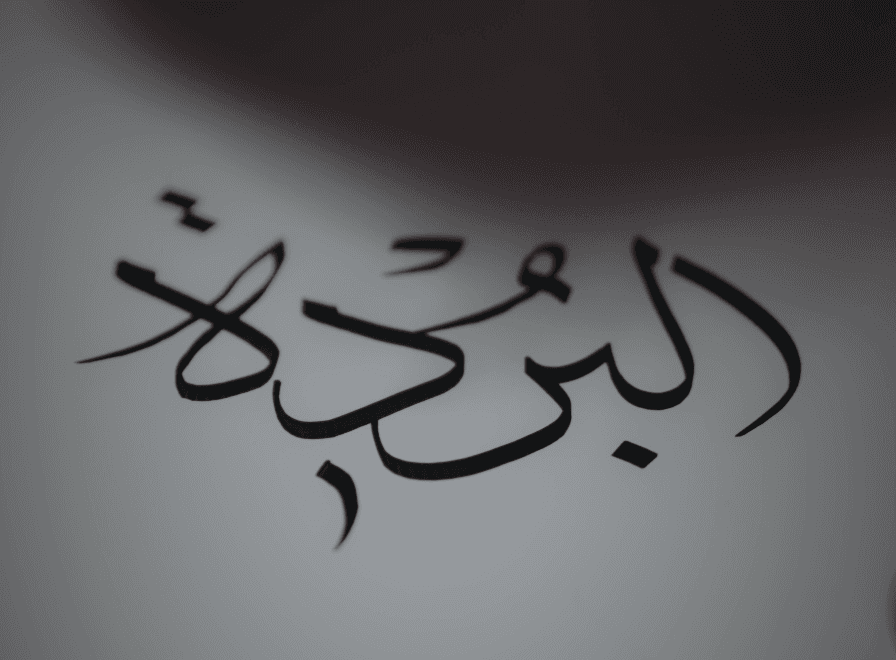 البُردة